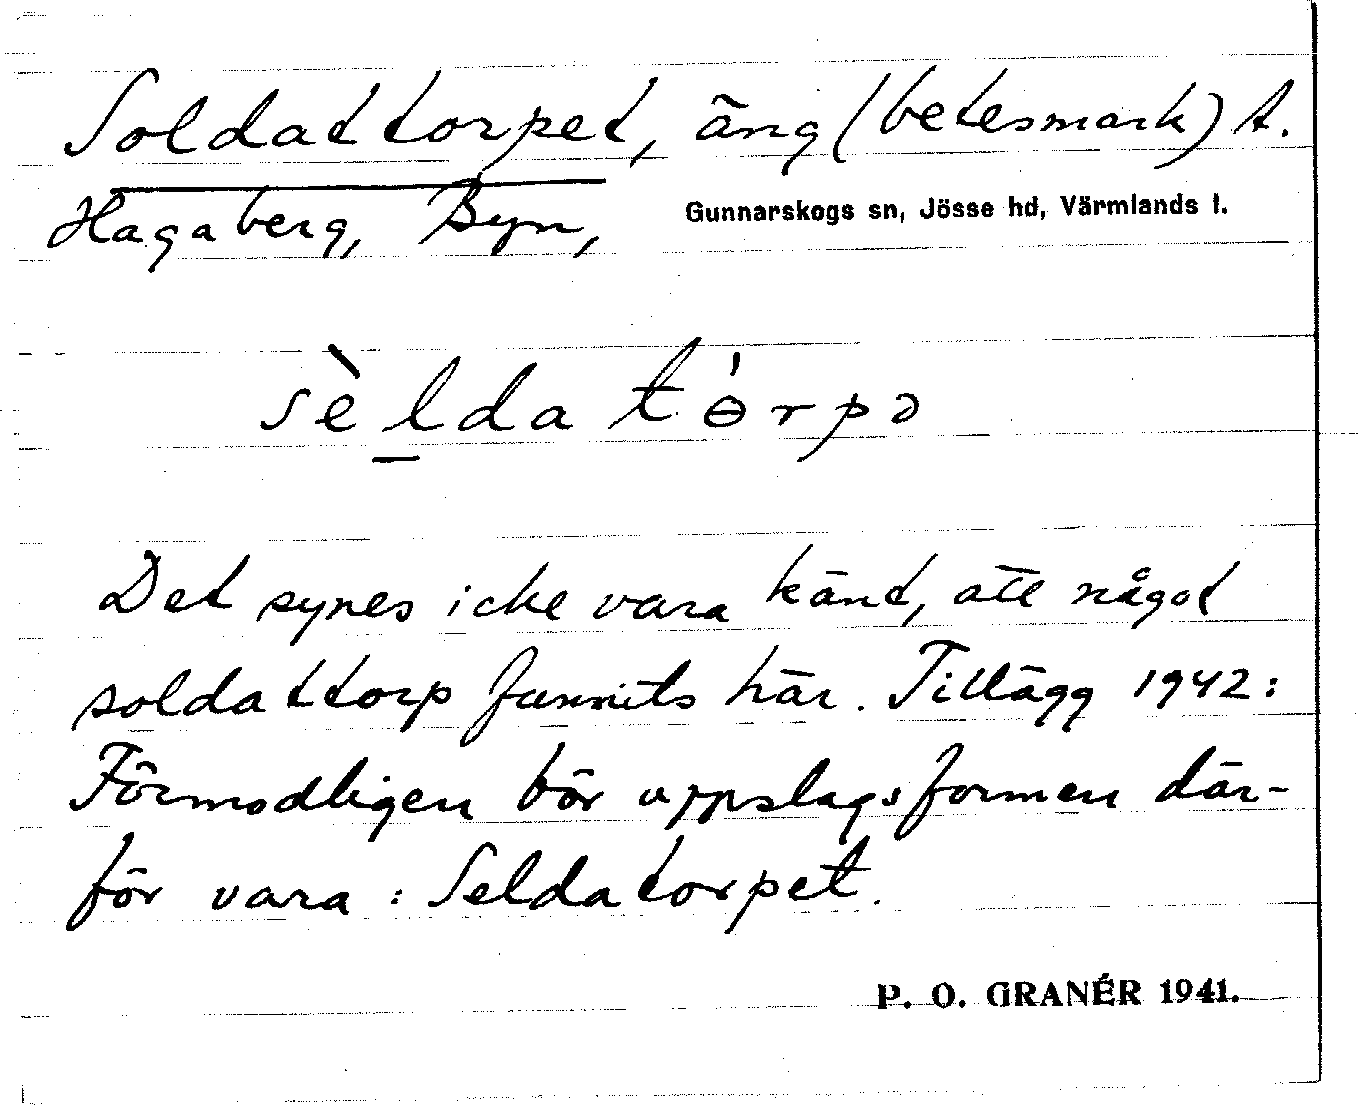 Soldattorpet, äng (betesmark) t.
Hagaberg, Byn, Gunnarskogs sn, Jösse hd, Värmlands l.
sèl̲da tɵ́rpə
Det synes icke vara känt, att något
soldattorp funnits här. Tillägg 1942:
Förmodligen bör uppslagsformen där-
för vara: Seldatorpet.
P. O. GRANÉR 1941.